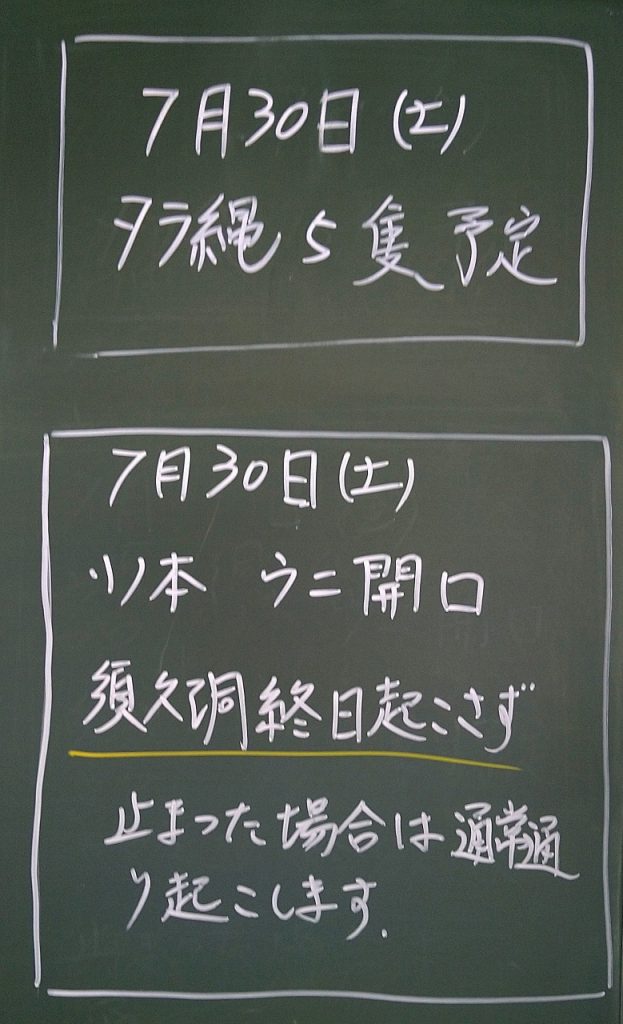 7月30日(土)
タラ縄5隻予定
7月30日(土)
ツノ本 ウニ開口
須久洞終日起こさず
止まった場合は通常通
り起こします.